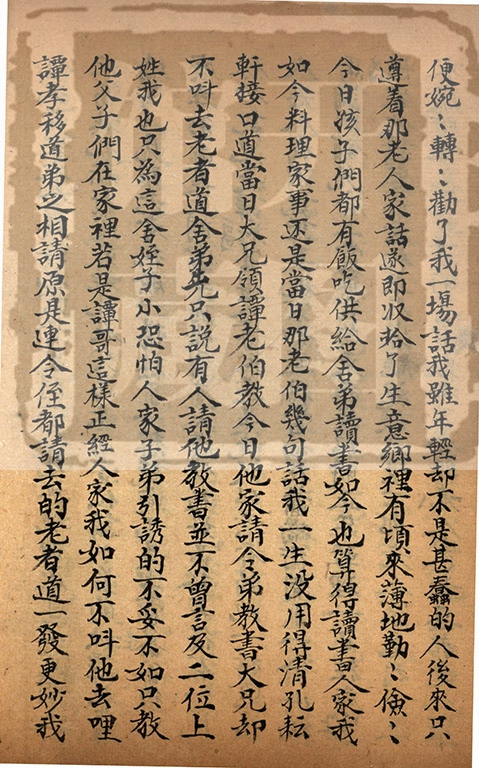 便婉〻轉〻勸了我一場話我雖年輕却不是甚蠢的人後來只
遵着那老人家話遂即收拾了生意鄉裡有頃來薄地勤〻儉〻
今日孩子們都有飯吃供給舍弟讀書如今也算得讀書人家我
如今料理家事还是當日那老伯幾句話我一生没用得清孔耘
軒接口道當日大兄領譚老伯教今日他家請令弟教書大兄却
不呌去老者道舍弟先只説有人請他教書並不曾言及二位上
姓我也只為這舍姪子小恐怕人家子弟引誘的不妥不如只教
他父子們在家裡若是譚哥這樣正經人家我如何不呌他去哩
譚孝移道弟之相請原是連令侄都請去的老者道一發更妙我